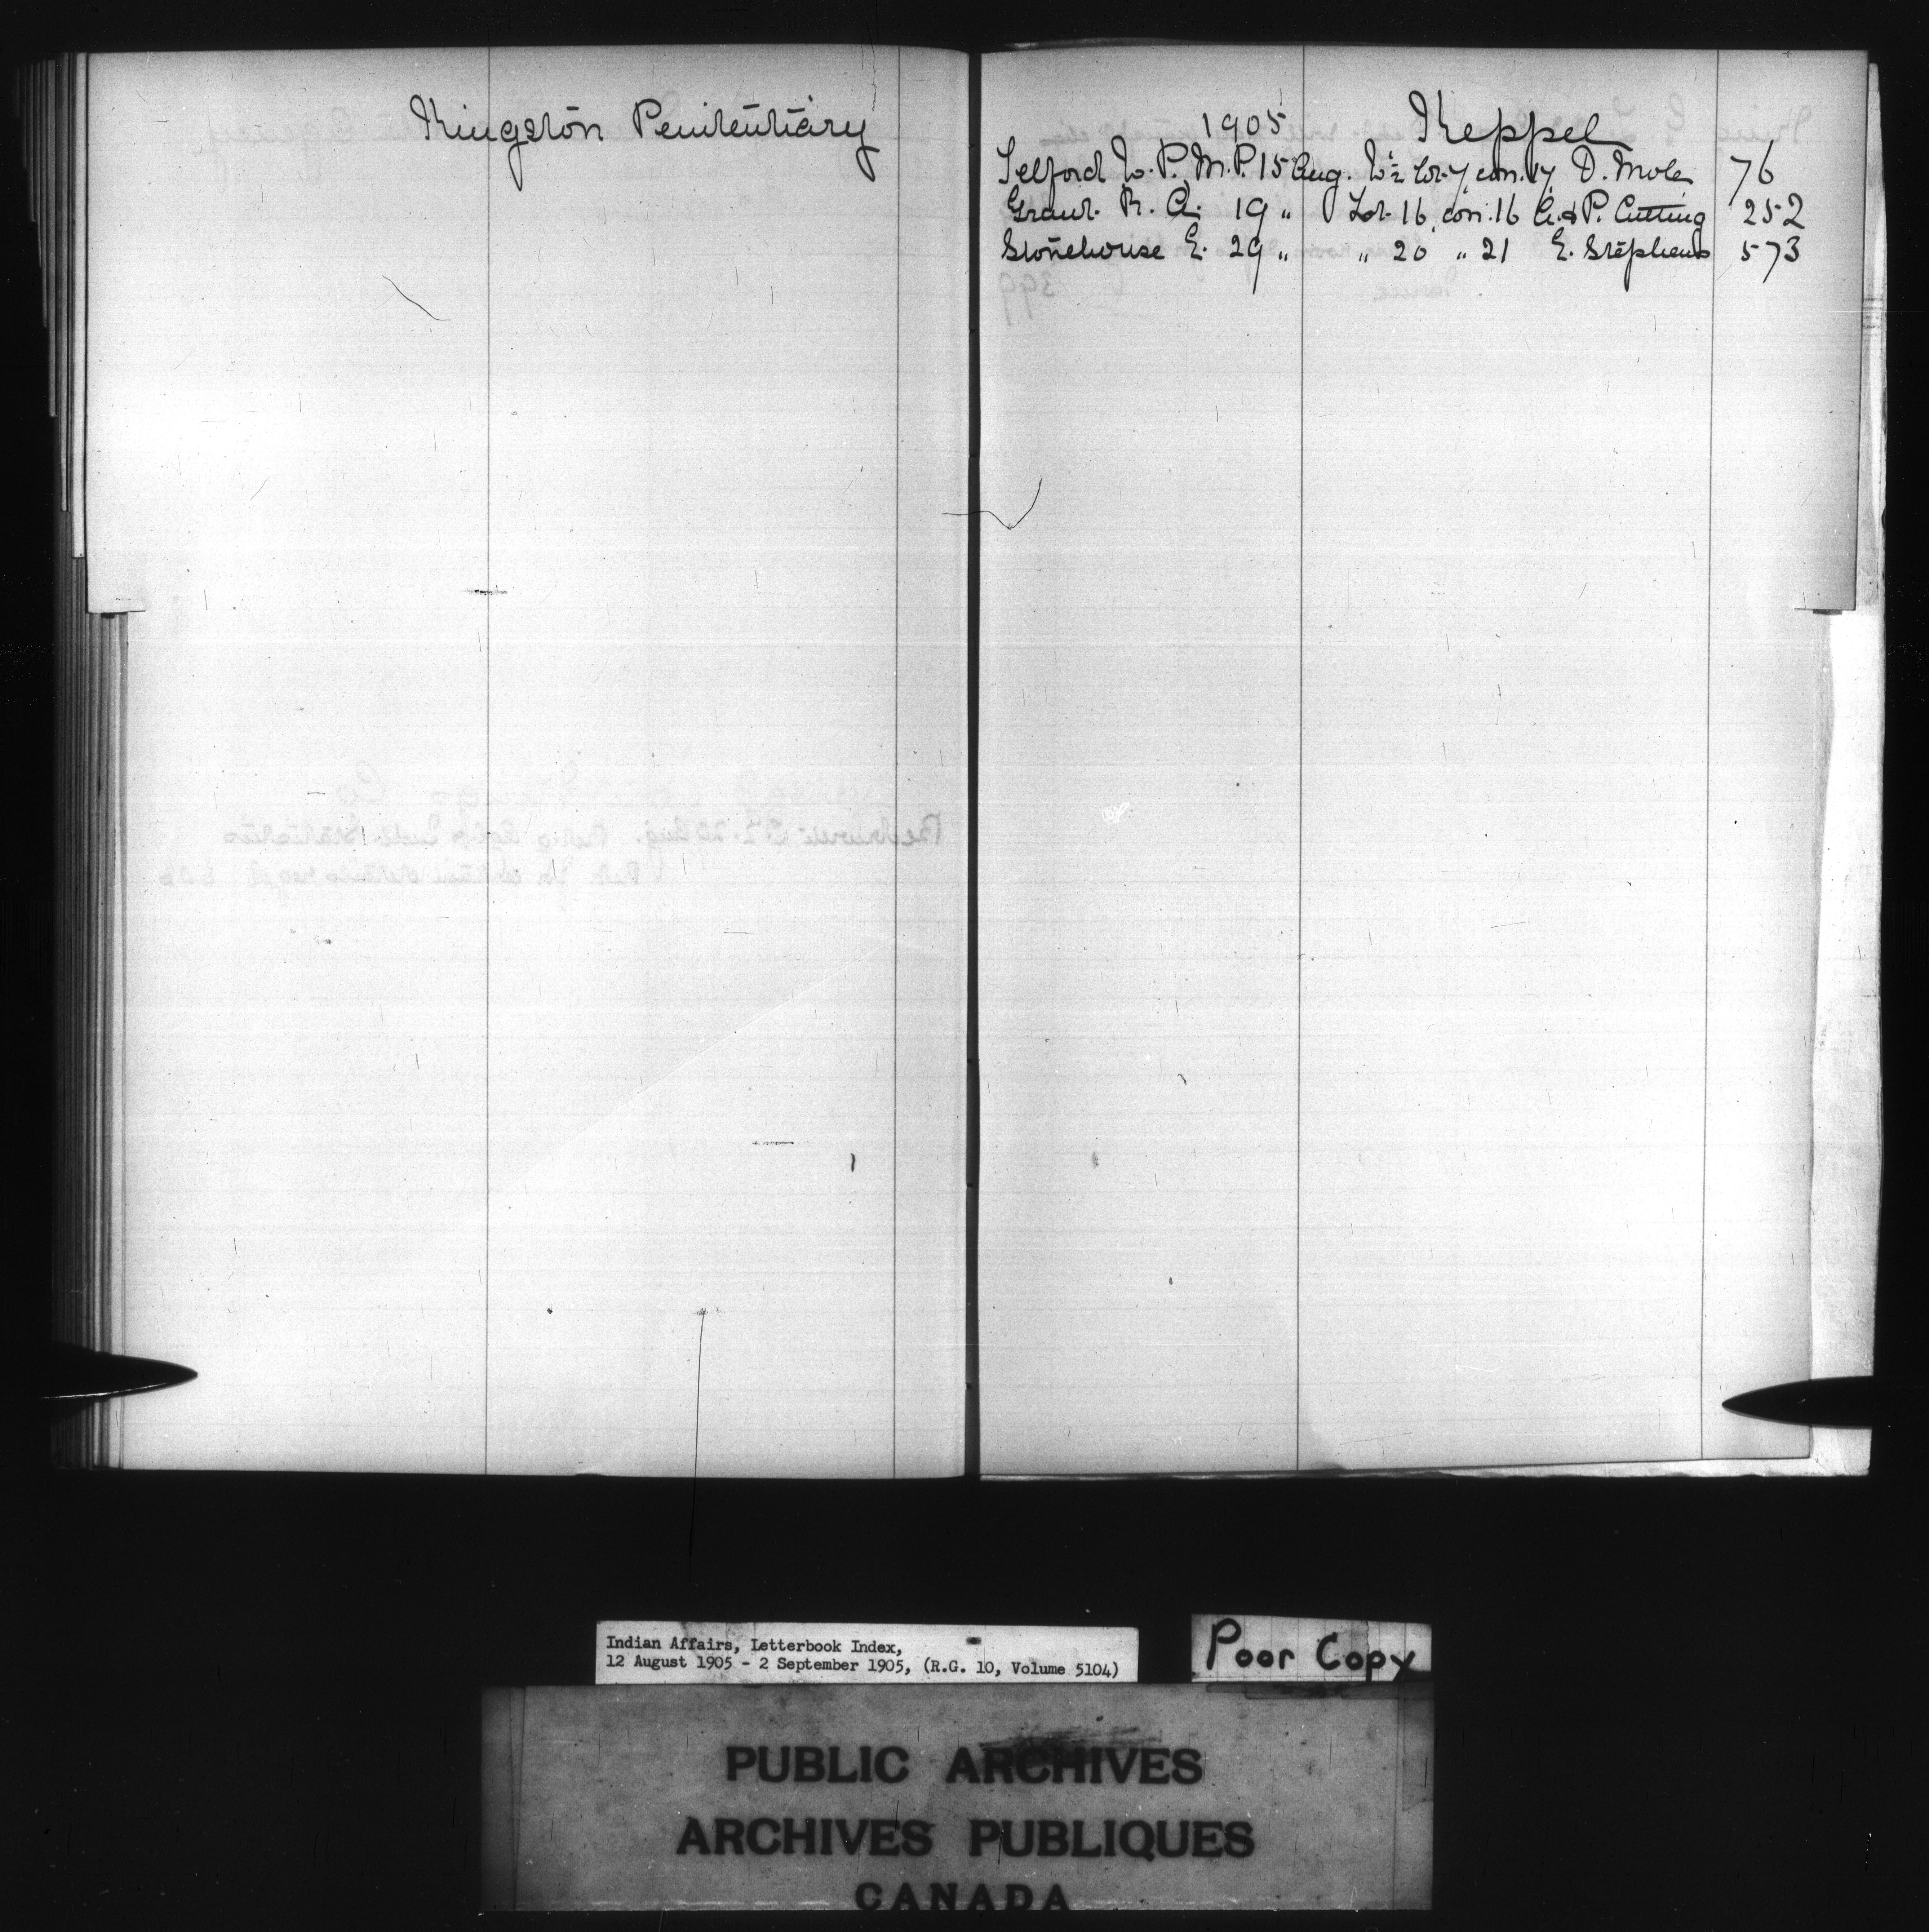 Kingston Penitentiary
1905 Keppel
Telford W. P. M.P. 15 Aug. W½ lot 7, con. 17, D. Mole 76
Grant R. A. 19 " Lot 16, con. 16 A. & P. Cutting 252
Stonehouse E. 29 " " 20 " 21 E. Stephens 573
Indian Affairs, Letterbook Index,
12 August 1905 - 2 September 1905, (R.G. 10, Volume 5104)
Poor Copy
PUBLIC ARCHIVES
ARCHIVES PUBLIQUES
CANADA